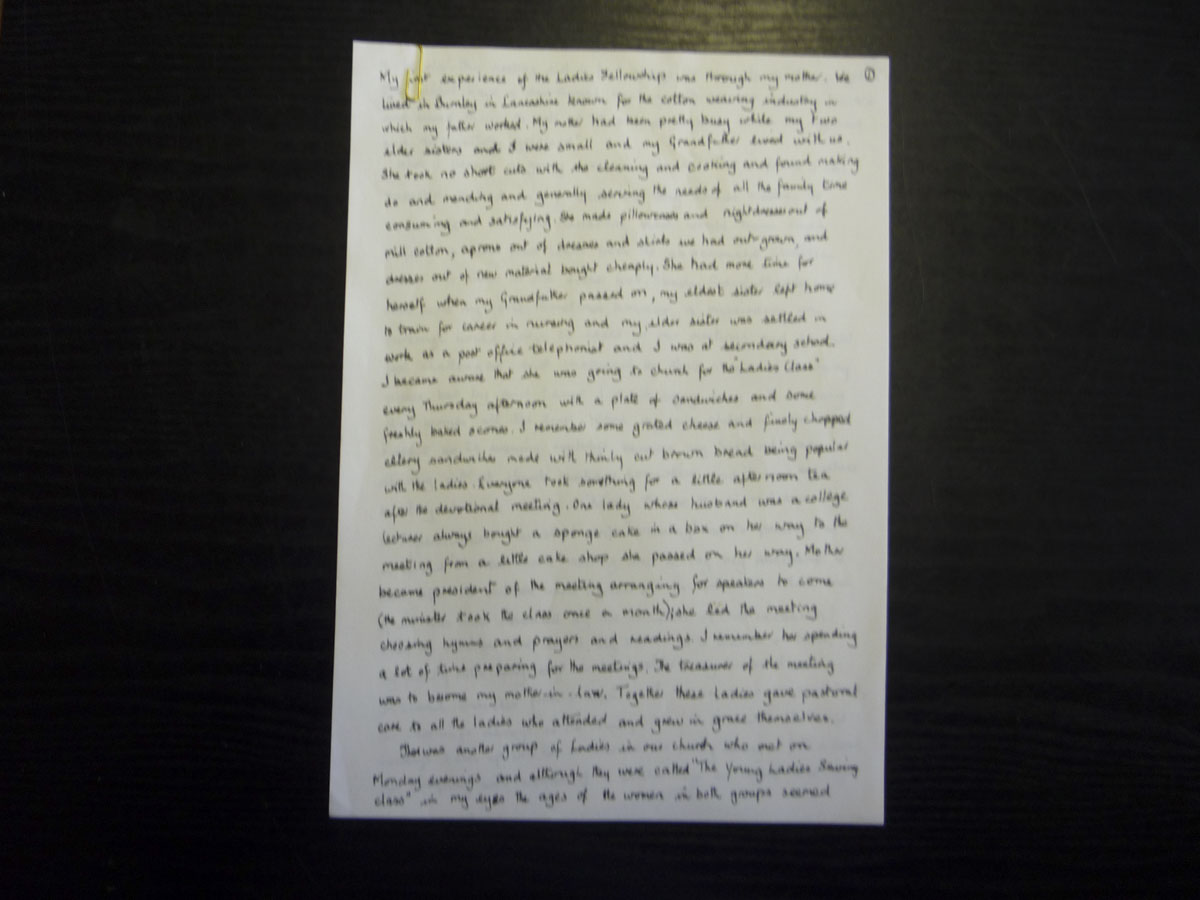 My first experience of the Ladies Fellowships was through my mother. We ①
lived in Burnley in Lancashire known for the cotton weaving industry in
which my father worked. My mother had been pretty busy while my two
elder sisters and I were small and my Grandfather lived with us.
She took no short cuts with the cleaning and cooking and found making
do and mending and generally serving the needs of all the family time
consuming and satisfying. She made pillowcases and nightdresses out of
mill cotton, aprons out of dresses and skirts we had out-grown, and
dresses out of new material bought cheaply. She had more time for
herself when my Grandfather passed on, my eldest sister left home
to train for career in nursing and my elder sister was settled in
work as a post office telephonist and I was at secondary school.
I became aware that she was going to church for the "Ladies Class"
every Thursday afternoon with a plate of sandwiches and some
freshly baked scones. I remember some grated cheese and finely chopped
celery sandwiches made with thinly cut brown bread being popular
with the ladies. Everyone took something for a little afternoon tea
after the devotional meeting. One lady whose husband was a college
lecturer always bought a sponge cake in a box on her way to the
meeting from a little cake shop she passed on her way. Mother
became president of the meeting arranging for speakers to come
(the minister took the class once a month); she led the meeting
choosing hymns and prayers and readings. I remember her spending
a lot of time preparing for the meetings. The treasurer of the meeting
was to become my mother-in-law. Together these Ladies gave pastoral
care to all the ladies who attended and grew in grace themselves.
There was another group of Ladies in our church who met on
Monday evenings and although they were called "The Young Ladies Sewing
class" in my eyes the ages of the women in both groups seemed